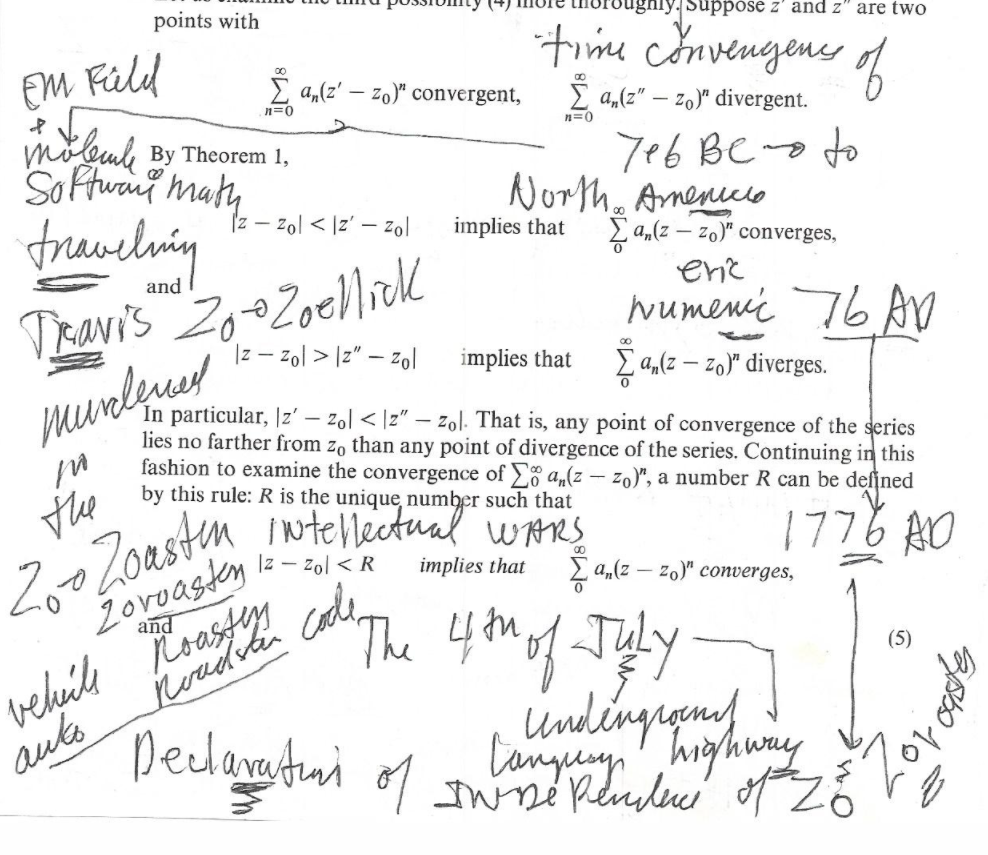 Let us examine the third possibility (4) more thoroughly. Suppose z′ and z″ are two
points with
time convengence of
EM Field
∞∑n=0 aₙ(z′ − z₀)ⁿ convergent, ∞∑n=0 aₙ(z″ − z₀)ⁿ divergent.
+
molecule By Theorem 1,
7+6 BC → to
Software math
North America
|z − z₀| < |z′ − z₀| implies that ∞∑0 aₙ(z − z₀)ⁿ converges,
traveling
and
eric
numeric 76 AD
Travis Z₀→Zoellick
|z − z₀| > |z″ − z₀| implies that ∞∑0 aₙ(z − z₀)ⁿ diverges.
murdered
In particular, |z′ − z₀| < |z″ − z₀|. That is, any point of convergence of the series
lies no farther from z₀ than any point of divergence of the series. Continuing in this
in
fashion to examine the convergence of ∑∞0 aₙ(z − z₀)ⁿ, a number R can be defined
by this rule: R is the unique number such that
the
Intellectual WARS
1776 AD
Z₀→Zoasten
|z − z₀| < R implies that ∞∑0 aₙ(z − z₀)ⁿ converges,
zoroasten
and
roasten
roadster code
The 4th of July
(5)
vehicle
auto
underground
language highway
Declaration of INDEPendence of Zo
Zoroaster